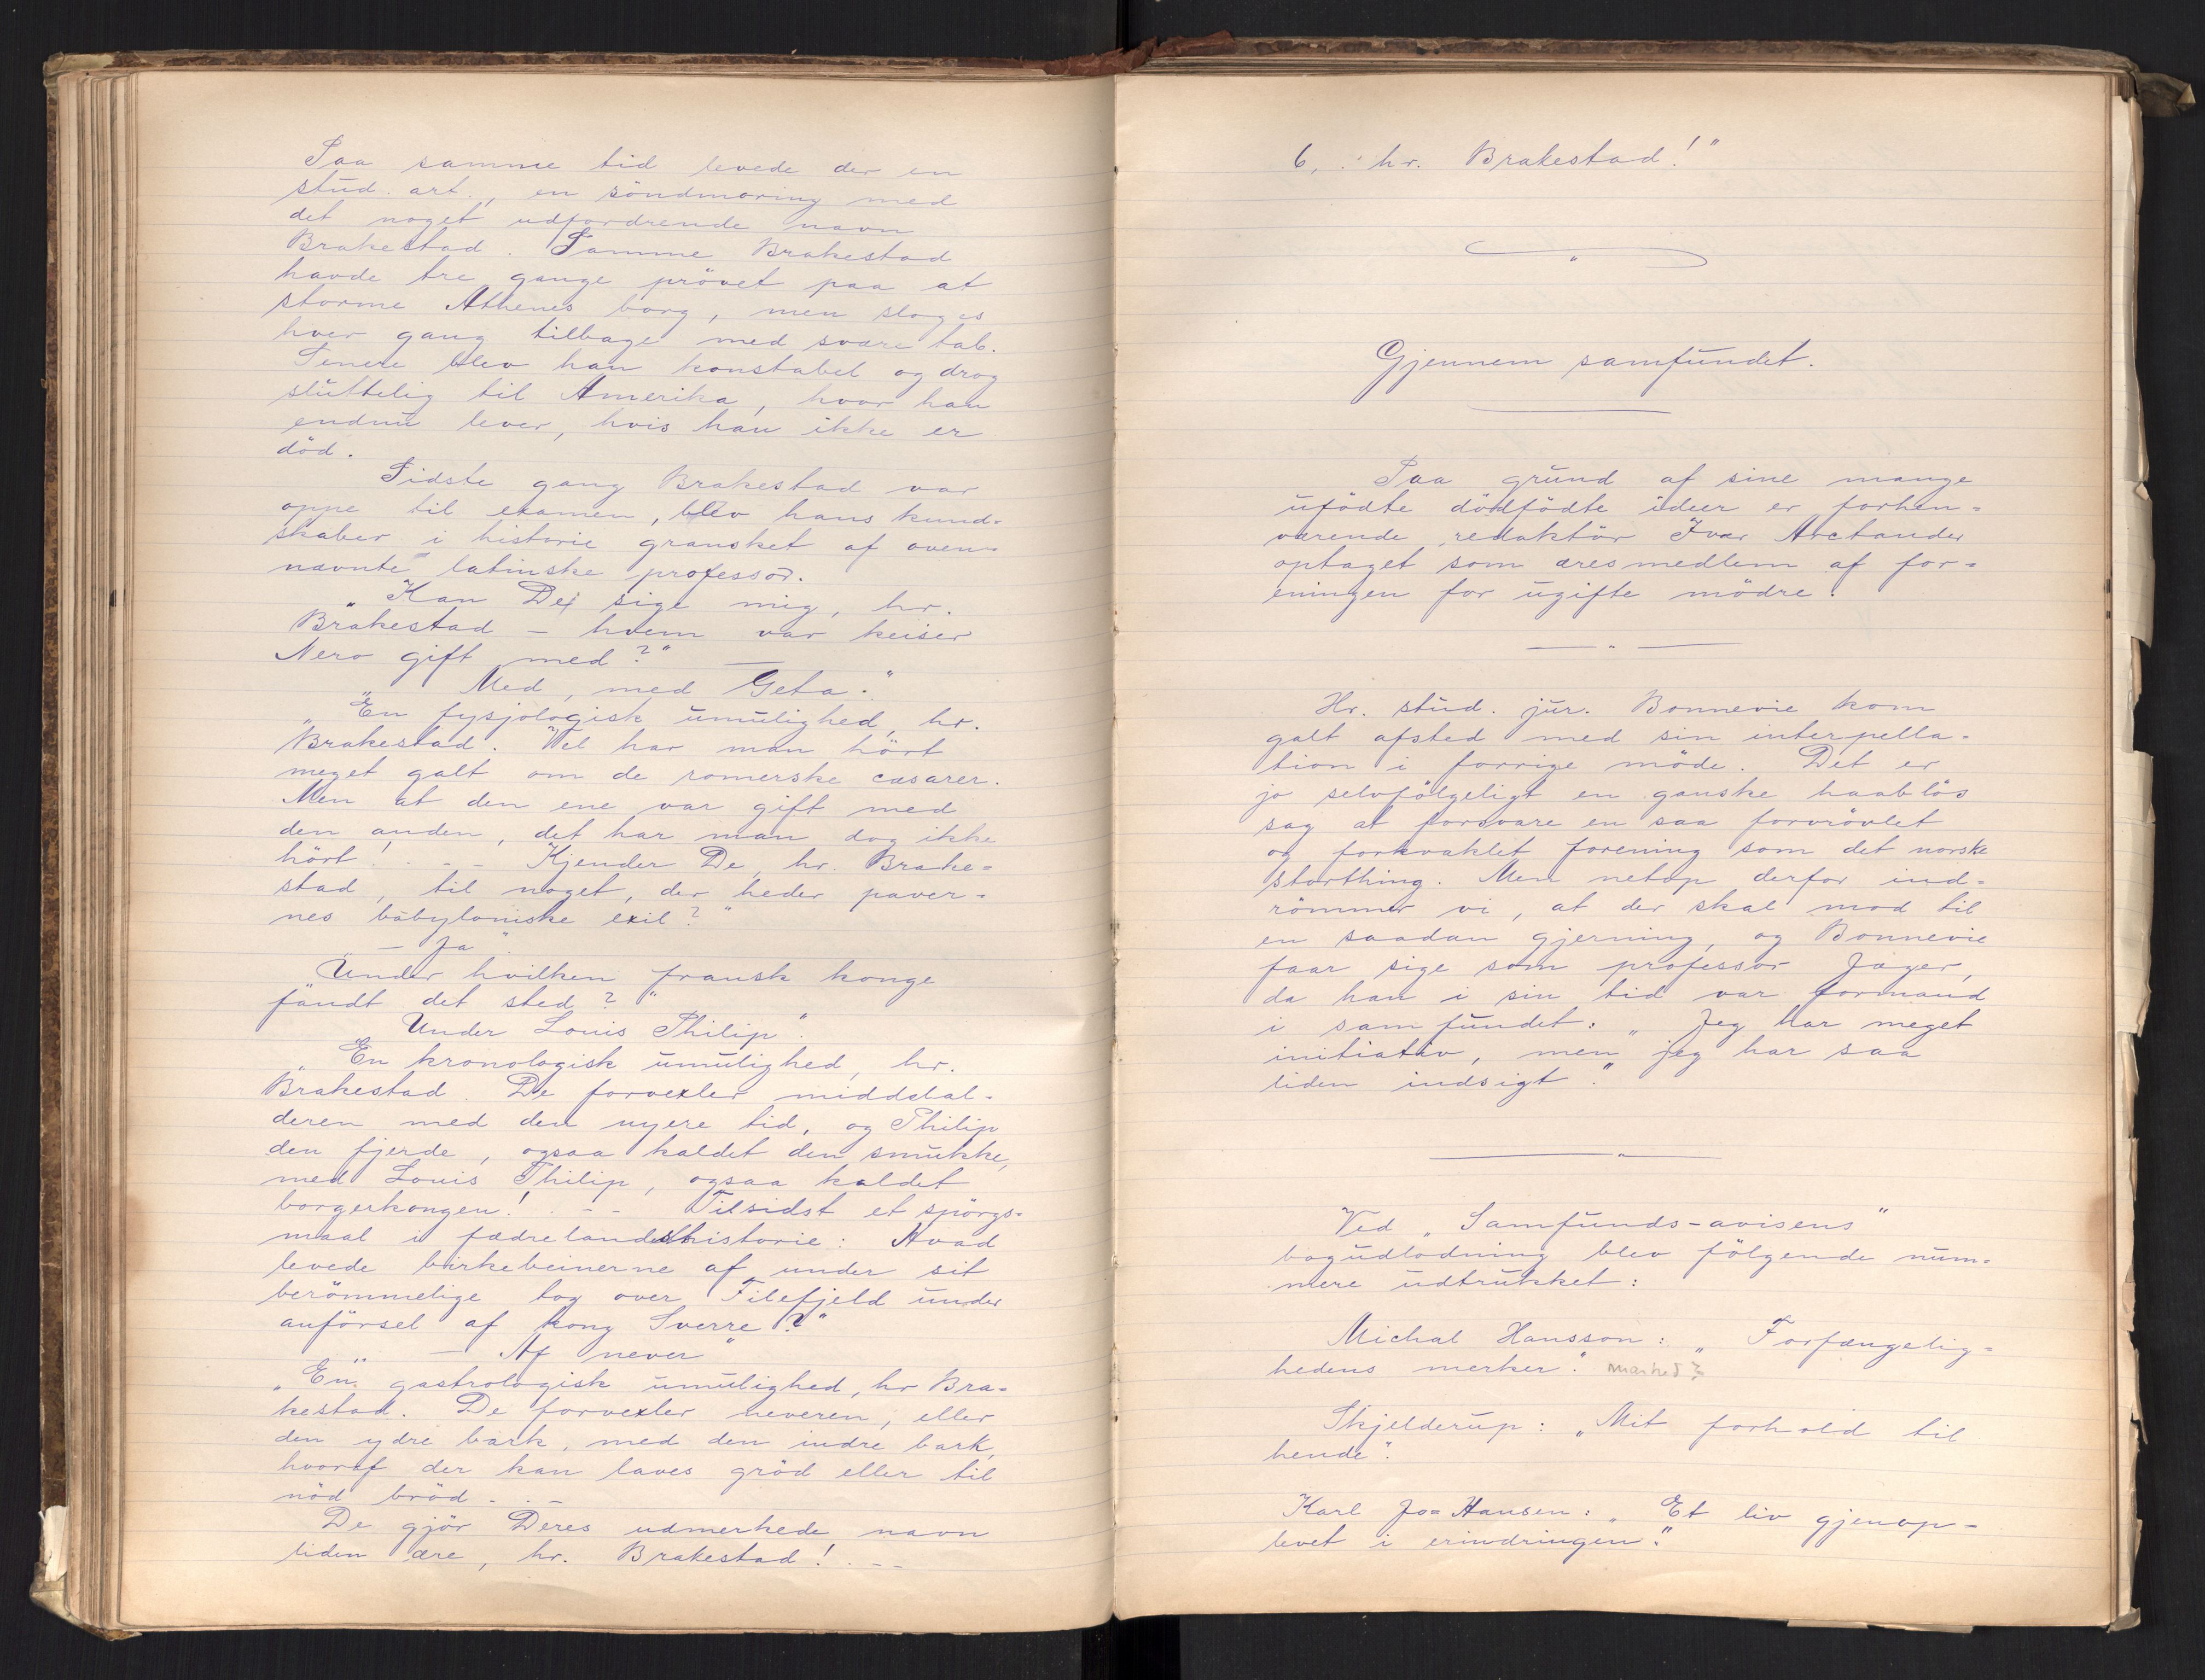 Paa samme tid levede der en
stud. art., en söndmöring med
det noget udfordrende navn
Brakestad. Samme Brakestad
havde tre gange prövet paa at
storme Athenes borg, men sloges
hver gang tilbage med svære tab.
Senere blev han konstabel og drog
sluttelig til Amerika, hvor han
endnu lever, hvis han ikke er
död.
Sidste gang Brakestad var
oppe til examen, blev hans kund-
skaber i historie gransket af oven-
nævnte latinske professor.
„Kan De sige mig, hr.
Brakestad – hvem var keiser
Nero gift med?" —
„Med, med Geta."
„En fysjologisk umulighed, hr.
Brakestad. Vel har man hört
meget galt om de romerske cæsarer.
Men at den ene var gift med
den anden, det har man dog ikke
hört! . – – Kjender De, hr. Brake-
stad, til noget, der heder paver-
nes babyloniske exil?"
– Ja"
Under hvilken fransk konge
fandt det sted?"
Under Louis Philip".
„En kronologisk umulighed, hr.
Brakestad. De forvexler middelal-
deren med den nyere tid, og Philip
den fjerde, ogsaa kaldet den smukke,
med Louis Philip, ogsaa kaldet
borgerkongen! . – – Tilsidst et spörgs-
maal i fædrelandshistorie: Hvad
levede birkebeinerne af under sit
berömmelige tog over Filefjeld under
anförsel af kong Sverre?"
— Af never"
„En gastrologisk umulighed, hr Bra-
kestad. De forvexler neveren, eller
den ydre bark, med den indre bark,
hvoraf der kan laves gröd eller til
nöd bröd. . –
De gjör Deres udmerkede navn
liden ære, hr. Brakestad! . – –
6, . hr. Brakestad!"
Gjennem samfundet.
Paa grund af sine mange
ufödte dödfödte ideer er forhen-
værende redaktör Ivar Arctander
optaget som æresmedlem af for-
eningen for ugifte mödre.
Hr. stud. jur. Bonnevie kom
galt afsted med sin interpella-
tion i forrige möde. Det er
jo selvfölgeligt en ganske haablös
sag at forsvare en saa forvrövlet
og forkvaklet forening som det norske
storthing. Men netop derfor ind-
römmer vi, at der skal mod til
en saadan gjerning, og Bonnevie
faar sige som professor Jæger,
da han i sin tid var formand
i samfundet: „Jeg har meget
initiativ, men jeg har saa
liden indsigt."
Ved „Samfunds-avisens"
bogudlodning blev fölgende num-
mere udtrukket:
Michal Hansson: „Forfængelig-
hedens merker." marked?
Skjelderup: „Mit forhold til
hende".
Karl Jo= Hansen: „Et liv gjenop-
levet i erindringen."